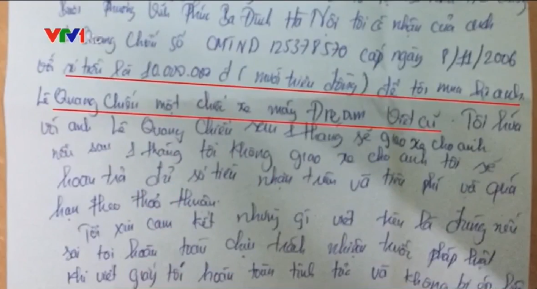 VTV1
Phường Vĩnh Phúc Ba Đình Hà Nội tôi có nhận của anh
Quang Chiểu số CMTND 125378570 cấp ngày 8/11/2006
số tiền là 10.000.000 đ (mười triệu đồng) để tôi mua hộ anh
Lê Quang Chiểu một chiếc xe máy Dream Việt cũ. Tôi hứa
với anh Lê Quang Chiểu sau 1 tháng sẽ giao xe cho anh
nếu sau 1 tháng tôi không giao xe cho anh tôi sẽ
hoàn trả đủ số tiền nhận trên và tiền phí vì quá
hạn theo thoả thuận.
Tôi xin cam kết những gì viết trên là đúng nếu
sai tôi hoàn toàn chịu trách nhiệm trước pháp luật
khi viết giấy tôi hoàn toàn tỉnh táo và không bị ép